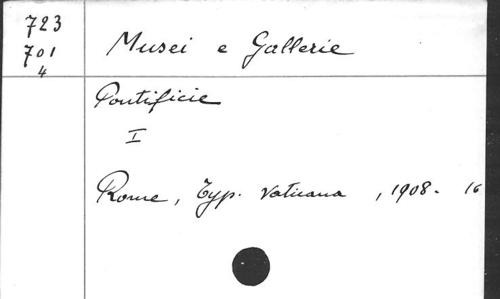 723
701
4
Musei e Gallerie
Pontificie
I
Rome, Typ. Vaticana, 1908. 16